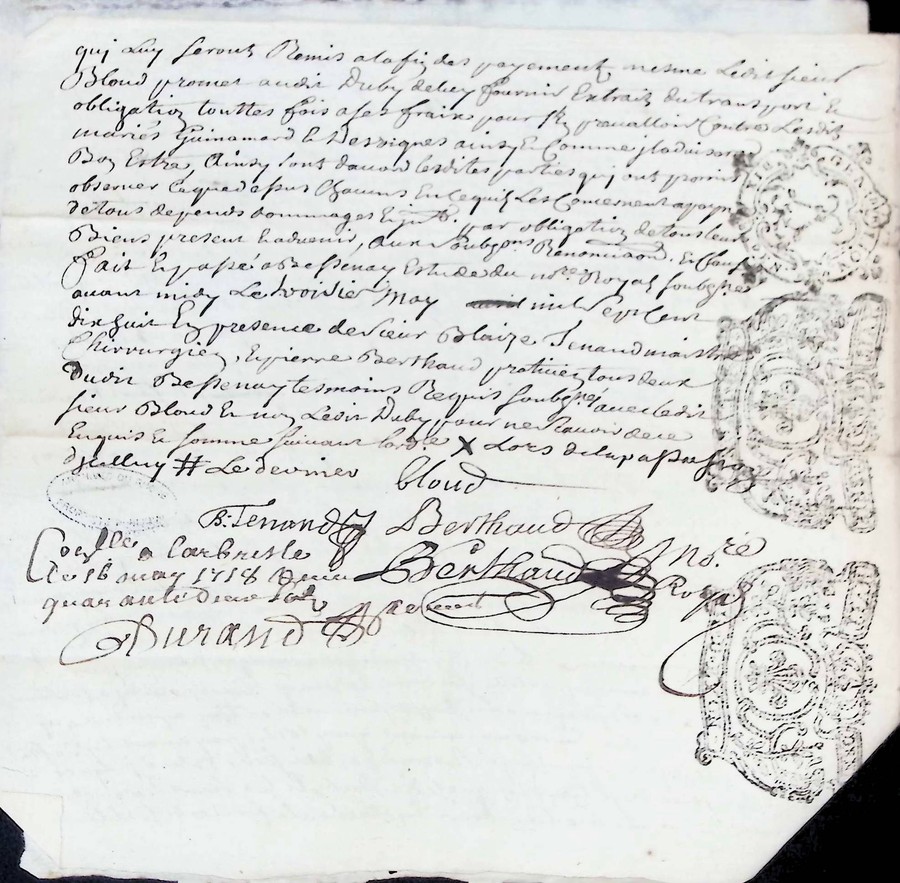 qui Luy seront Remis a la fin des payement, mesme Ledit sieur
Bloud promet audit Duby deluy fournir Extrait du transport Et
obligation, touttes fois a ses fraix pour sen prevalloir Contre Lesdit
mariés Guinamard Et Desvignes ainsy Et Comme Il advisera
Bon Estre, Ainsy sont daccord lesdites parties qui ont promis
observer Ce que dessus Chacuns En Ce quil Les Concernent a peyne
de tous depends dommages Et par obligation de tous leur
Biens present Et advenir, aux Renonciaon Et Clause
fait Et passé a Bessenay Estude du nore Royal soubsne
avant midy Le may avril mil sept Cent
dix huit En presence de sieur Blaize Tenand maistre
Chirurgien, Et pierre Berthaud praticien tous deux
dudit Bessenay tesmoins Requis soubsnes avec Ledit
sieur Bloud Et non Ledit Duby pour ne scavoir de ce
Enquis Et somme suivant Lorde X Lors de la passa
dicelluy # Le dernier
bloud
B: Tenand Berthaud
Coellé a Larbresle
le 16 may 1718 Receu Berthaud nore Royal
quarante deux sols
Durand